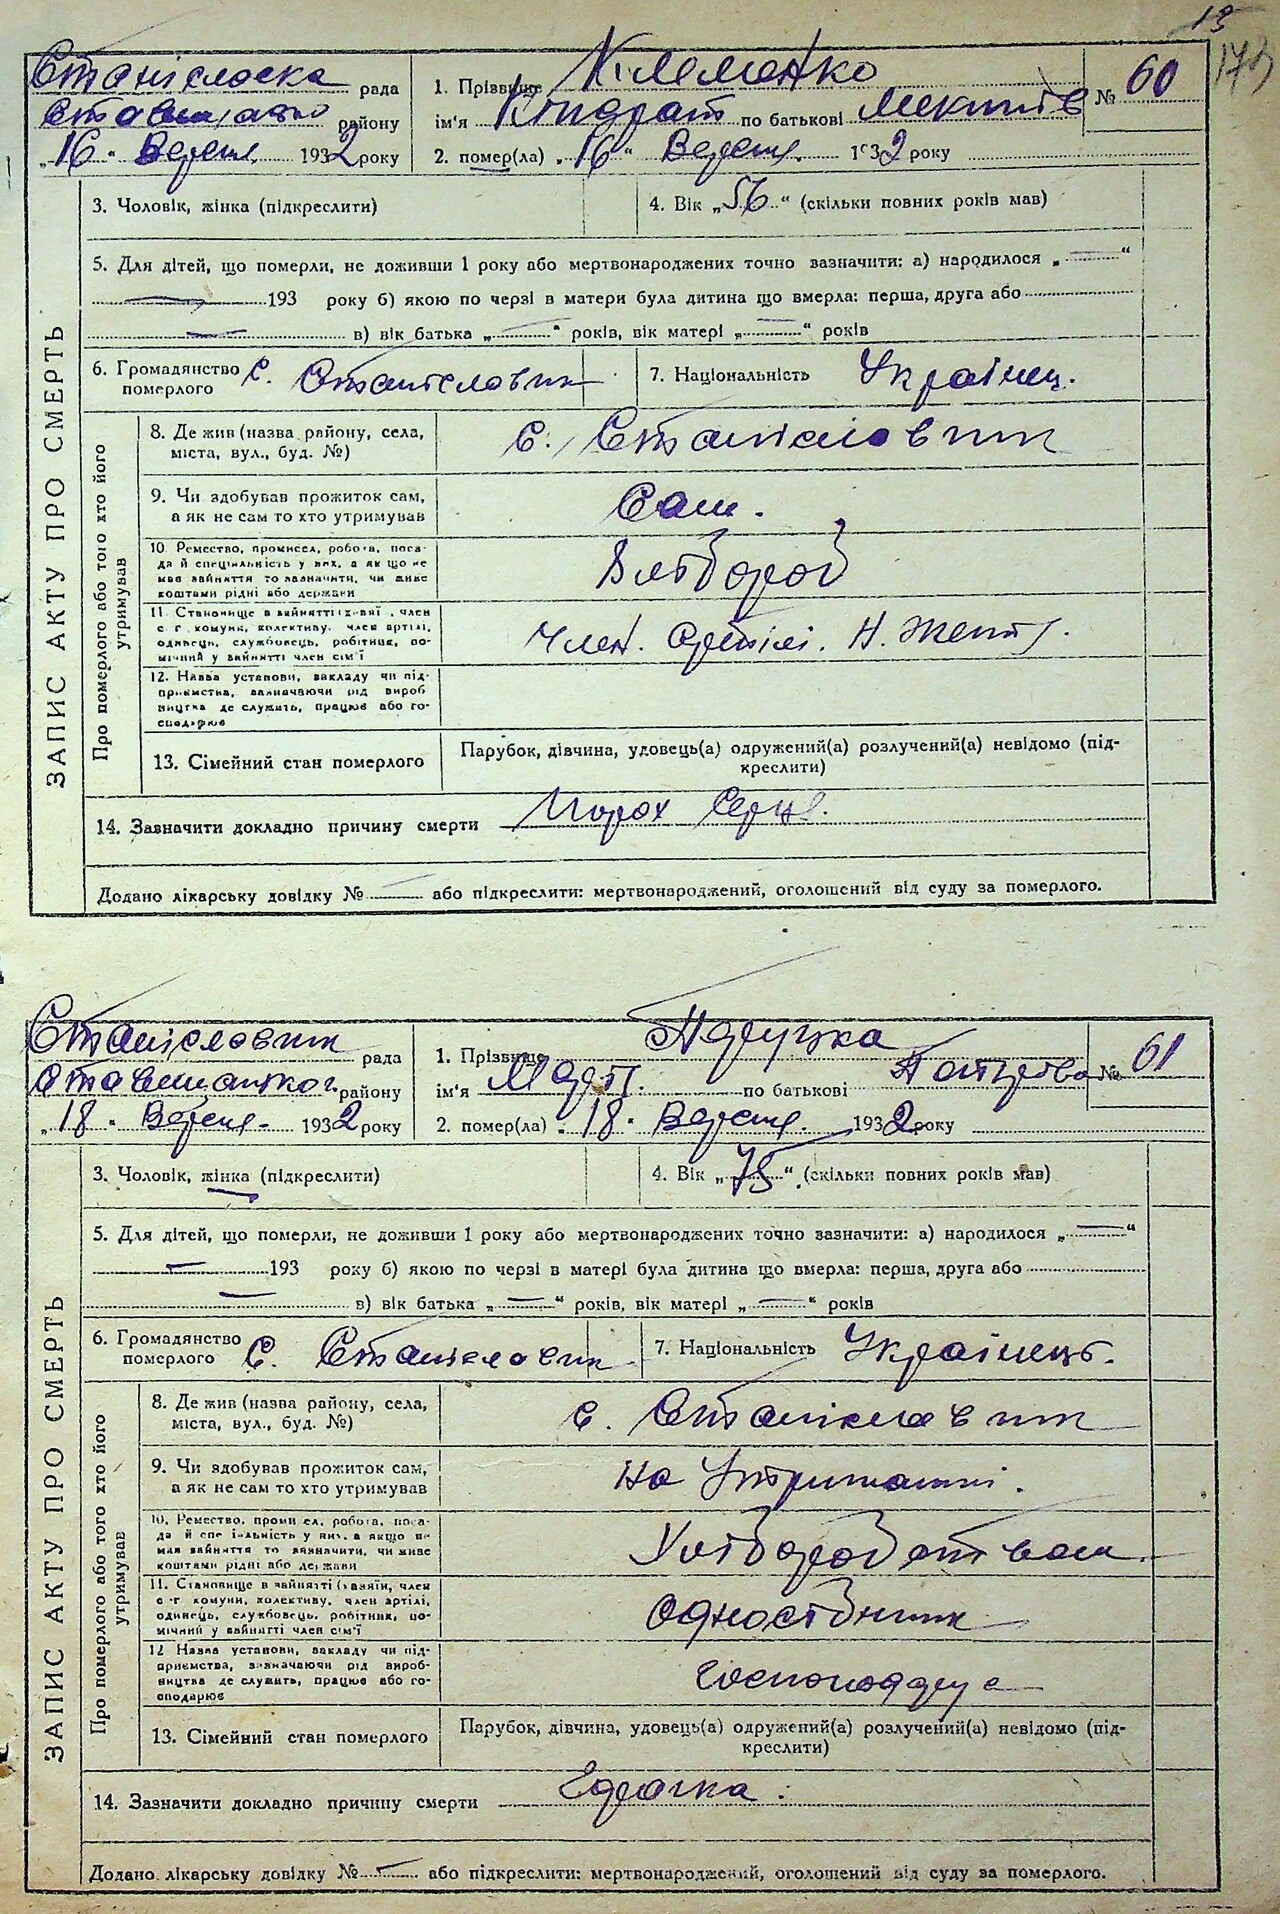 13
173
Станіславска рада
Ставищанско району
„16“ Вересня 1932 року
1. Прізвище Клименко
ім'я Кіндрат по батькові Микитів
№ 60
2. помер(ла) „16“ Вересня 1932 року
3. Чоловік, жінка (підкреслити)
4. Вік „56“ (скільки повних років мав)
5. Для дітей, що померли, не доживши 1 року або мертвонароджених точно зазначити: а) народилося „—“
193 року б) якою по черзі в матери була дитина що вмерла: перша, друга або
в) вік батька „—“ років, вік матері „—“ років
6. Громадянство померлого С. Станіславчик
7. Національність Українец.
ЗАПИС АКТУ ПРО СМЕРТЬ
Про померлого або того хто його утримував
8. Де жив (назва району, села,
міста, вул., буд. №)
С. Станіславчик
9. Чи здобував прожиток сам,
а як не сам то хто утримував
Сам.
10. Ремество, промисел, робота, поса-
да й спеціальність у них, а як що не
мав зайняття то зазначити, чи живе
коштами рідні або держави
Хлібороб
11. Становище в зайнятті (хазяї, член
с.-г. комуни, колективу, член артілі,
одинець, службовець, робітник, по-
мічний у зайнятті член сім'ї
Член. Артілі. Н. Життя.
12. Назва установи, закладу чи під-
приємства, зазначаючи рід вироб
ництва де служить, працює або го-
сподарює
13. Сімейний стан померлого
Парубок, дівчина, удовець(а) одружений(а) розлучений(а) невідомо (під-
креслити)
14. Зазначити докладно причину смерти Порох Серця.
Додано лікарську довідку № — або підкреслити: мертвонароджений, оголошений від суду за померлого.
Станіславчик рада
Ставищанского району
„18“ Вересня 1932 року
1. Прізвище
ім'я по батькові
№ 61
2. помер(ла) „18“ Вересня 1932 року
3. Чоловік, жінка (підкреслити)
4. Вік „75“ (скільки повних років мав)
5. Для дітей, що померли, не доживши 1 року або мертвонароджених точно зазначити: а) народилося „—“
193 року б) якою по черзі в матері була дитина що вмерла: перша, друга або
в) вік батька „—“ років, вік матері „—“ років
6. Громадянство померлого С. Станіславчик
7. Національність Українець.
ЗАПИС АКТУ ПРО СМЕРТЬ
Про померлого або того хто його утримував
8. Де жив (назва району, села,
міста, вул., буд. №)
с. Станіславчик
9. Чи здобував прожиток сам,
а як не сам то хто утримував
на Утриманні.
10. Ремество, промисел, робота, поса-
да й спеціальність у них, а якщо не
мав зайняття то зазначити, чи живе
коштами рідні або держави
Хліборобством
11. Становище в зайнятті (хазяїн, член
с-г комуни, колективу, член артілі,
одинець, службовець, робітник, по-
мічний у зайнятті член сім'ї
Одноосібник
12 Назва установи, закладу чи під-
приємства, зазначаючи рід вироб-
ництва де служить, працює або го-
сподарює
13. Сімейний стан померлого
Парубок, дівчина, удовець(а) одружений(а) розлучений(а) невідомо (під-
креслити)
14. Зазначити докладно причину смерти
Додано лікарську довідку № — або підкреслити: мертвонароджений, оголошений від суду за померлого.